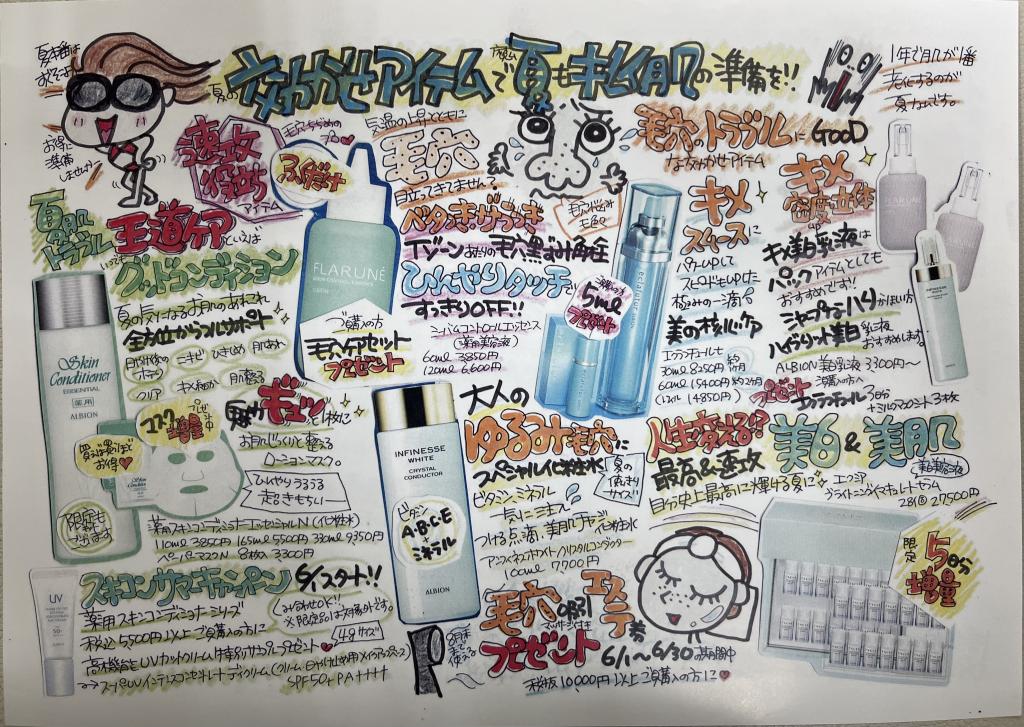 夏本番は
お得に
準備
しませんか?
夏の 効かせアイテムで 夏もキレイ肌の準備を!!
1年で肌が1番
夏なんです。
速攻
役立ち
アイテム
ふくだけ
気温の上昇とともに
毛穴
目立ってきません?
毛穴のトラブルに GooD
な効かせアイテム
夏肌
トラブル
王道ケアといえば
グッドコンディション
夏の気になるお肌のあれこれ
全方位からフルサポート
ニキビ
肌あれ
クリア
キメ細か
肌整える
FLARUNÉ
ALBION
ご購入の方
毛穴ケアセット
プレゼント
ベタつき・ザラつき
Tゾーンあたりの毛穴黒ずみ角栓
ひんやりタッチで
すっきりOFF!!
(薬用美容液)
60ml 3850円
120ml 6,600円
5ml
プレゼント
キメ
スムースに
パワーUPして
スピードもUPした
極みの一滴
美の核心ケア
エクラフチュールt
30ml 8250円
60ml 15400円 約2ヶ月
キメ
密度立体
up
キメ美白乳液は
パックアイテムとしても
おすすめです!!
ハイブリット美白乳液
おすすめします
ALBION 美白乳液 3300円〜
ご購入の方へ
プレゼント
エクラフチュール 3日分
3枚
FLARUNÉ
INFINESSE
WHITE
Skin
Conditioner
ESSENTIAL
薬用
ALBION
買えば買うほど
お得♥
マスク
増量
プレゼント中
限定も
出ます
夏力ギュッと1枚に
お肌じっくりと整える
ローションマスク。
ひんやりうるうる
超きもちいー
薬用スキンコンディショナーエッセンシャルN (化粧水)
110ml 3850円 165ml 5500円 330ml 9350円
ペーパーマスクN 8枚入 3300円
INFINESSE
WHITE
CRYSTAL
CONDUCTOR
ビタミン
A・B・C・E
+
ミネラル
ALBION
大人の
ゆるみ毛穴に
スペシャル化粧水
ビタミン、ミネラル
一気に注入
つける点滴、美肌チャージ化粧水
アンフィネスホワイト クリスタルコンダクター
100ml 7700円
人生変える!?
最高&速攻
美白&美肌
美白美容液
自分史上最高に輝ける夏に
エクシア
28個 27500円
限定
5日分
増量
スキコンサマーキャンペーン 6/1スタート!!
薬用スキンコンディショナーシリーズ
税込5,500円以上ご購入の方に
※限定品は対象外です。
高機能なUVカットクリーム特別サンプルプレゼント♥
スーパーUV インテンスコンセントレートデイクリーム(クリーム・日やけ止め用メイクアップベース)
SPF50+ PA++++
UV
8月末
まで
使える
毛穴 エステ券
プレゼント
6/1〜6/30の期間中
税抜10,000円以上ご購入の方に♥